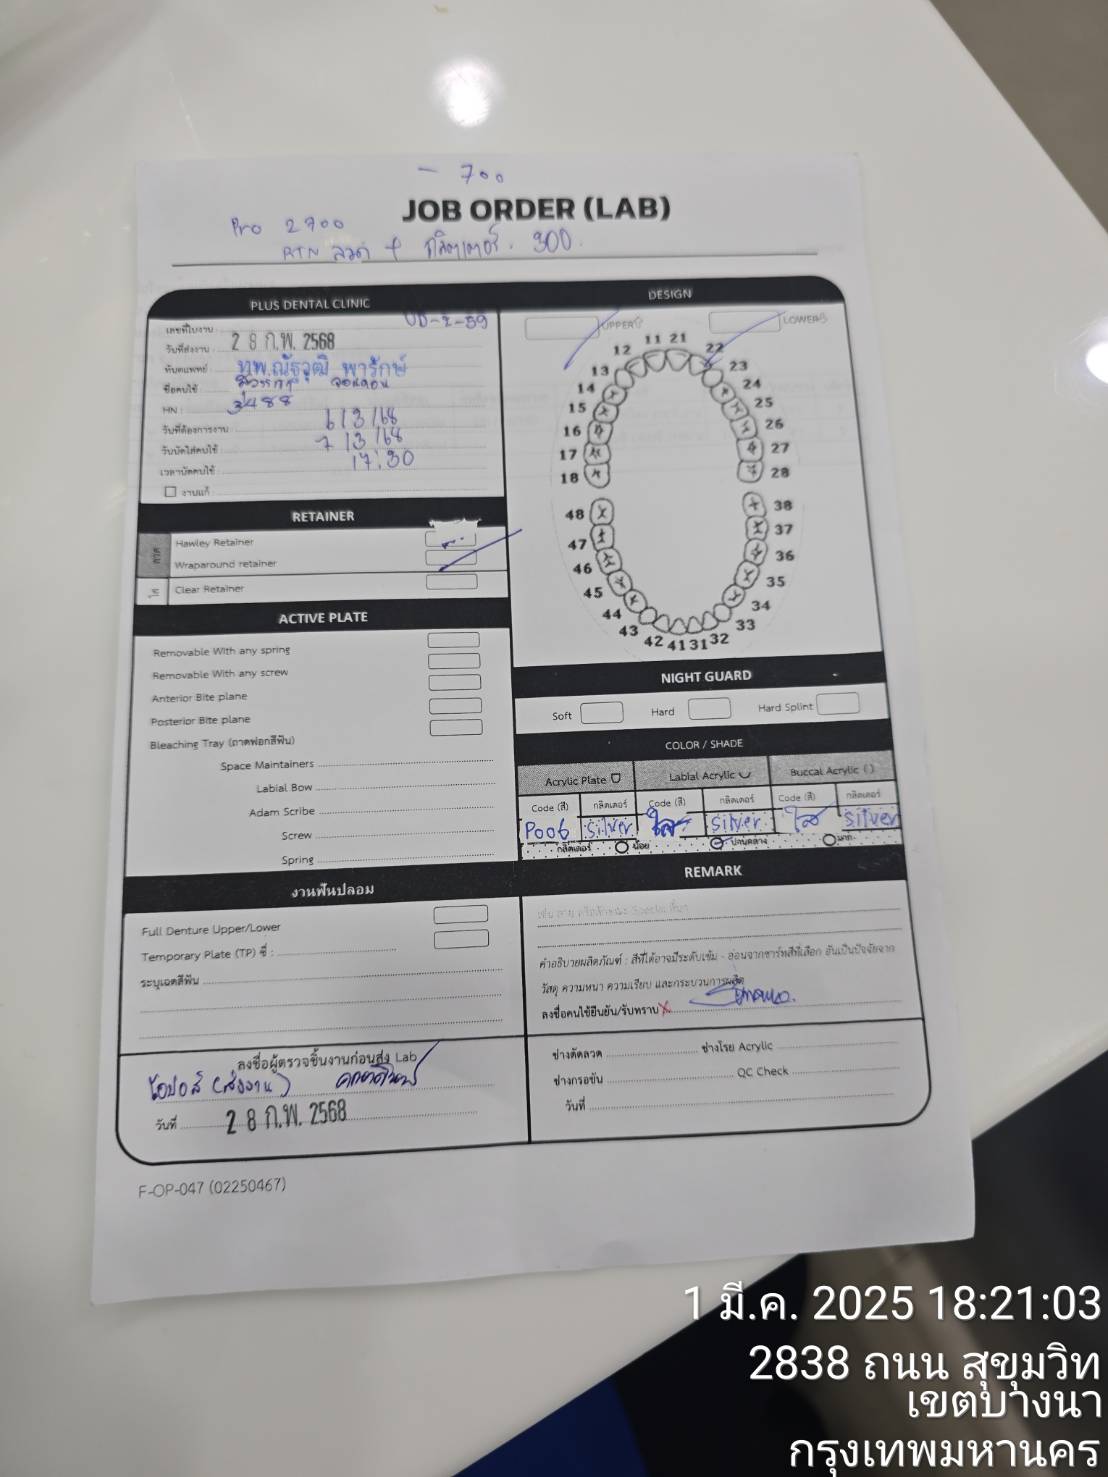 - 700
JOB ORDER (LAB)
Pro 2700
RTN ลวด + กลิตเตอร์ 300
PLUS DENTAL CLINIC
เลขที่ใบงาน
วันที่ส่งงาน 28 ก.พ. 2568
ทันตแพทย์ ทพ.ณัฐวุฒิ พารักษ์
ชื่อคนไข้
HN : 3488
วันที่ต้องการงาน 6/3/68
วันนัดใส่คนไข้ 7/3/68
เวลานัดคนไข้ 17:30
งานแก้
RETAINER
ลวด
Hawley Retainer
Wraparound retainer
ใส
Clear Retainer
ACTIVE PLATE
Removable With any spring
Removable With any screw
Anterior Bite plane
Posterior Bite plane
Bleaching Tray (ถาดฟอกสีฟัน)
Space Maintainers
Labial Bow
Adam Scribe
Screw
Spring
งานฟันปลอม
Full Denture Upper/Lower
Temporary Plate (TP) ซี่ :
ระบุเฉดสีฟัน
ลงชื่อผู้ตรวจชิ้นงานก่อนส่ง Lab
(ส่งงาน)
วันที่ 28 ก.พ. 2568
DESIGN
UPPER
LOWER
11 21
12 22
13 23
14 24
15 25
16 26
17 27
18 28
48 38
47 37
46 36
45 35
44 34
43 33
42 41 31 32
NIGHT GUARD
Soft Hard Hard Splint
COLOR / SHADE
Acrylic Plate Labial Acrylic Buccal Acrylic ( )
Code (สี) กลิตเตอร์ Code (สี) กลิตเตอร์ Code (สี) กลิตเตอร์
P006 silver ใส silver ใส silver
กลิตเตอร์ น้อย ปานกลาง มาก
REMARK
คำอธิบายผลิตภัณฑ์ : สีที่ได้อาจมีระดับเข้ม - อ่อนจากชาร์ทสีที่เลือก อันเป็นปัจจัยจาก
วัสดุ ความหนา ความเรียบ และกระบวนการผลิต
ลงชื่อคนไข้ยืนยัน/รับทราบ X
ช่างดัดลวด ช่างโรย Acrylic
ช่างกรอขัน QC Check
วันที่
F-OP-047 (02250467)
1 มี.ค. 2025 18:21:03
2838 ถนน สุขุมวิท
เขตบางนา
กรุงเทพมหานคร